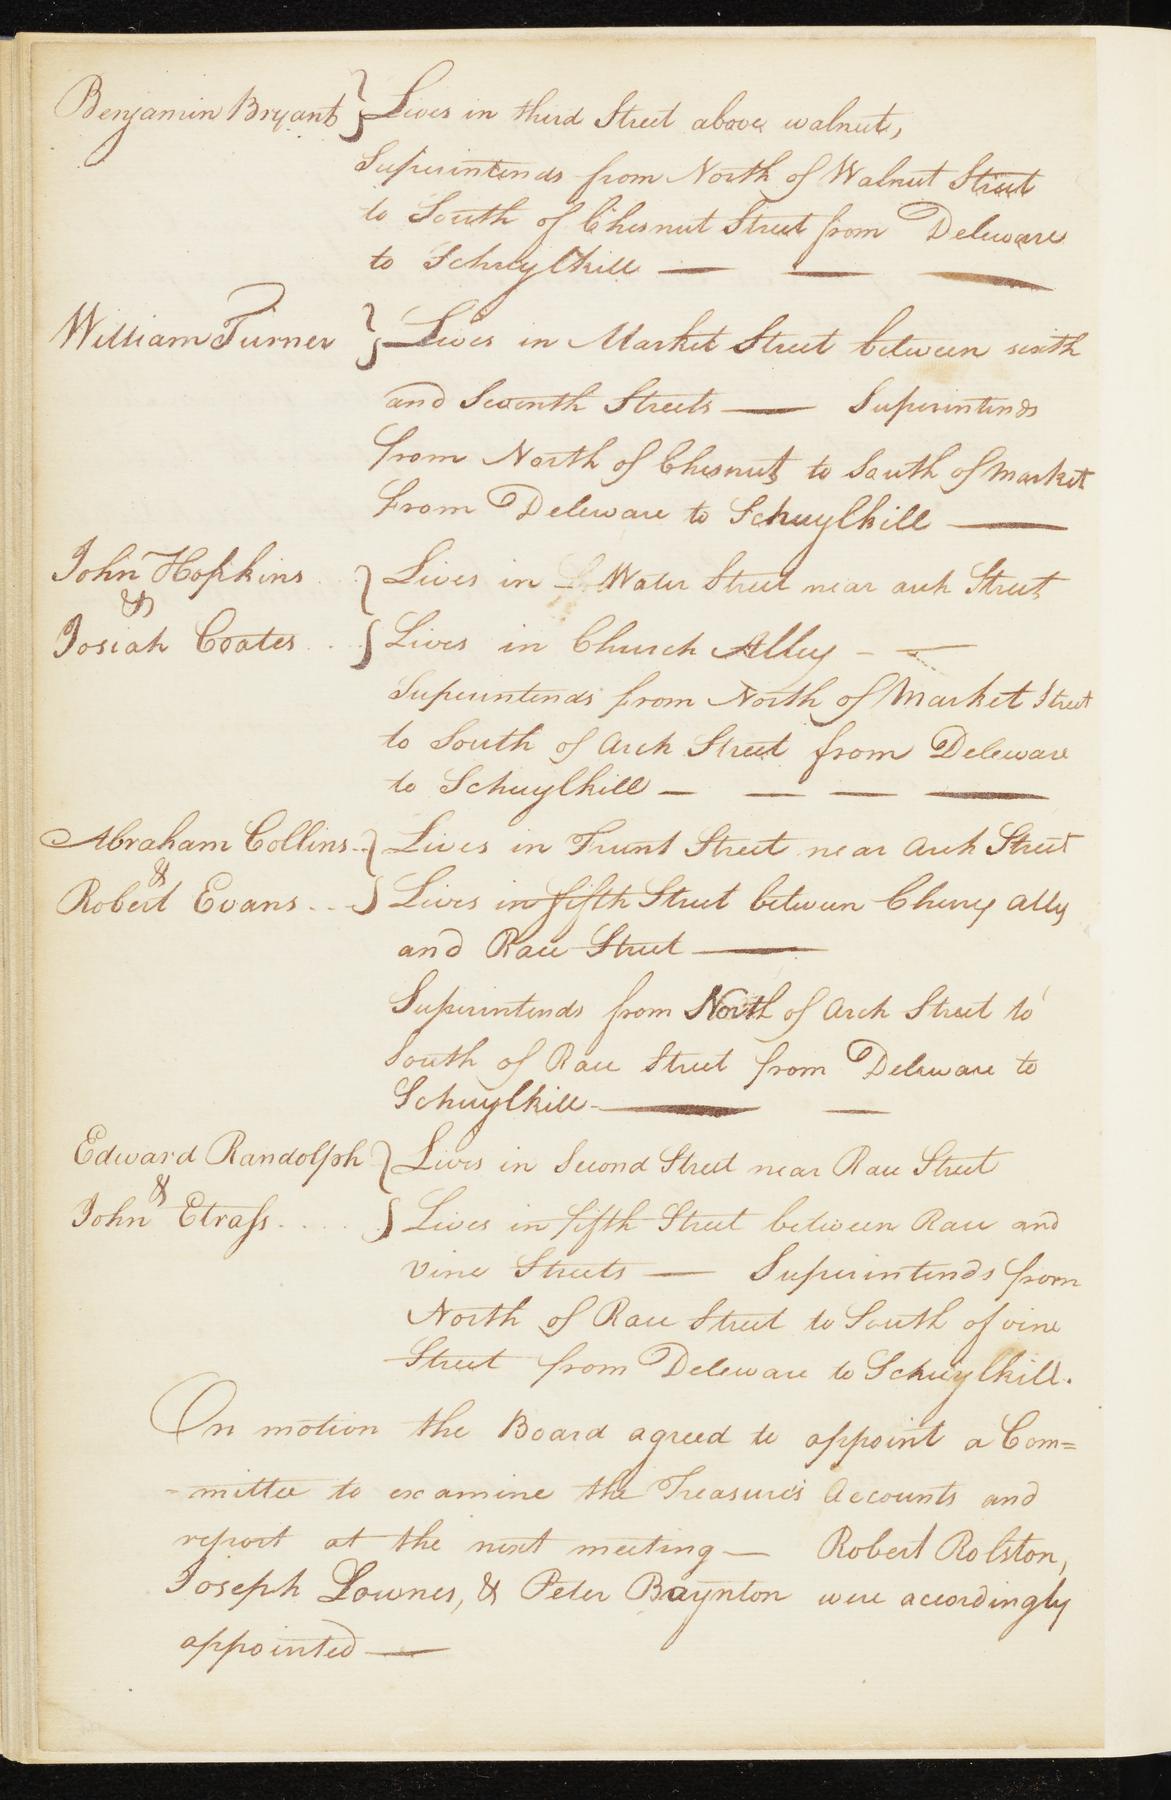 Benjamin Bryant } Lives in third Street above walnut,
Superintends from North of Walnut Street
to South of Chesnut Street from Deleware
to Schuylkill — — —
William Turner } Lives in Market Street between sixth
and Seventh Streets — Superintends
from North of Chesnut to South of Market
From Deleware to Schuylkill —
John Hopkins } Lives in Water Street near arch Street
&
Josiah Coates . . } Lives in Church Alley - —
Superintends from North of Market Street
to South of Arch Street from Deleware
to Schuylkill — — — —
Abraham Collins.. } Lives in Frunt Street near Arch Street
&
Robert Evans . . - } Lives in fifth Street between Cherry Ally
and Race Street —
Superintends from North of Arch Street to
South of Race Street from Deleware to
Schuylkill. — —
Edward Randolph } Lives in Second Street near Race Street
&
John Etrass. . . . . } Lives in fifth Street between Race and
vine Streets — Superintends from
North of Race Street to South of vine
Street from Deleware to Schuylkill.
On motion the Board agreed to appoint a Com=
-mittee to examine the Treasures Accounts and
report at the next meeting — Robert Rolston,
Joseph Lownes, & Peter Baynton were accordingly
appointed —